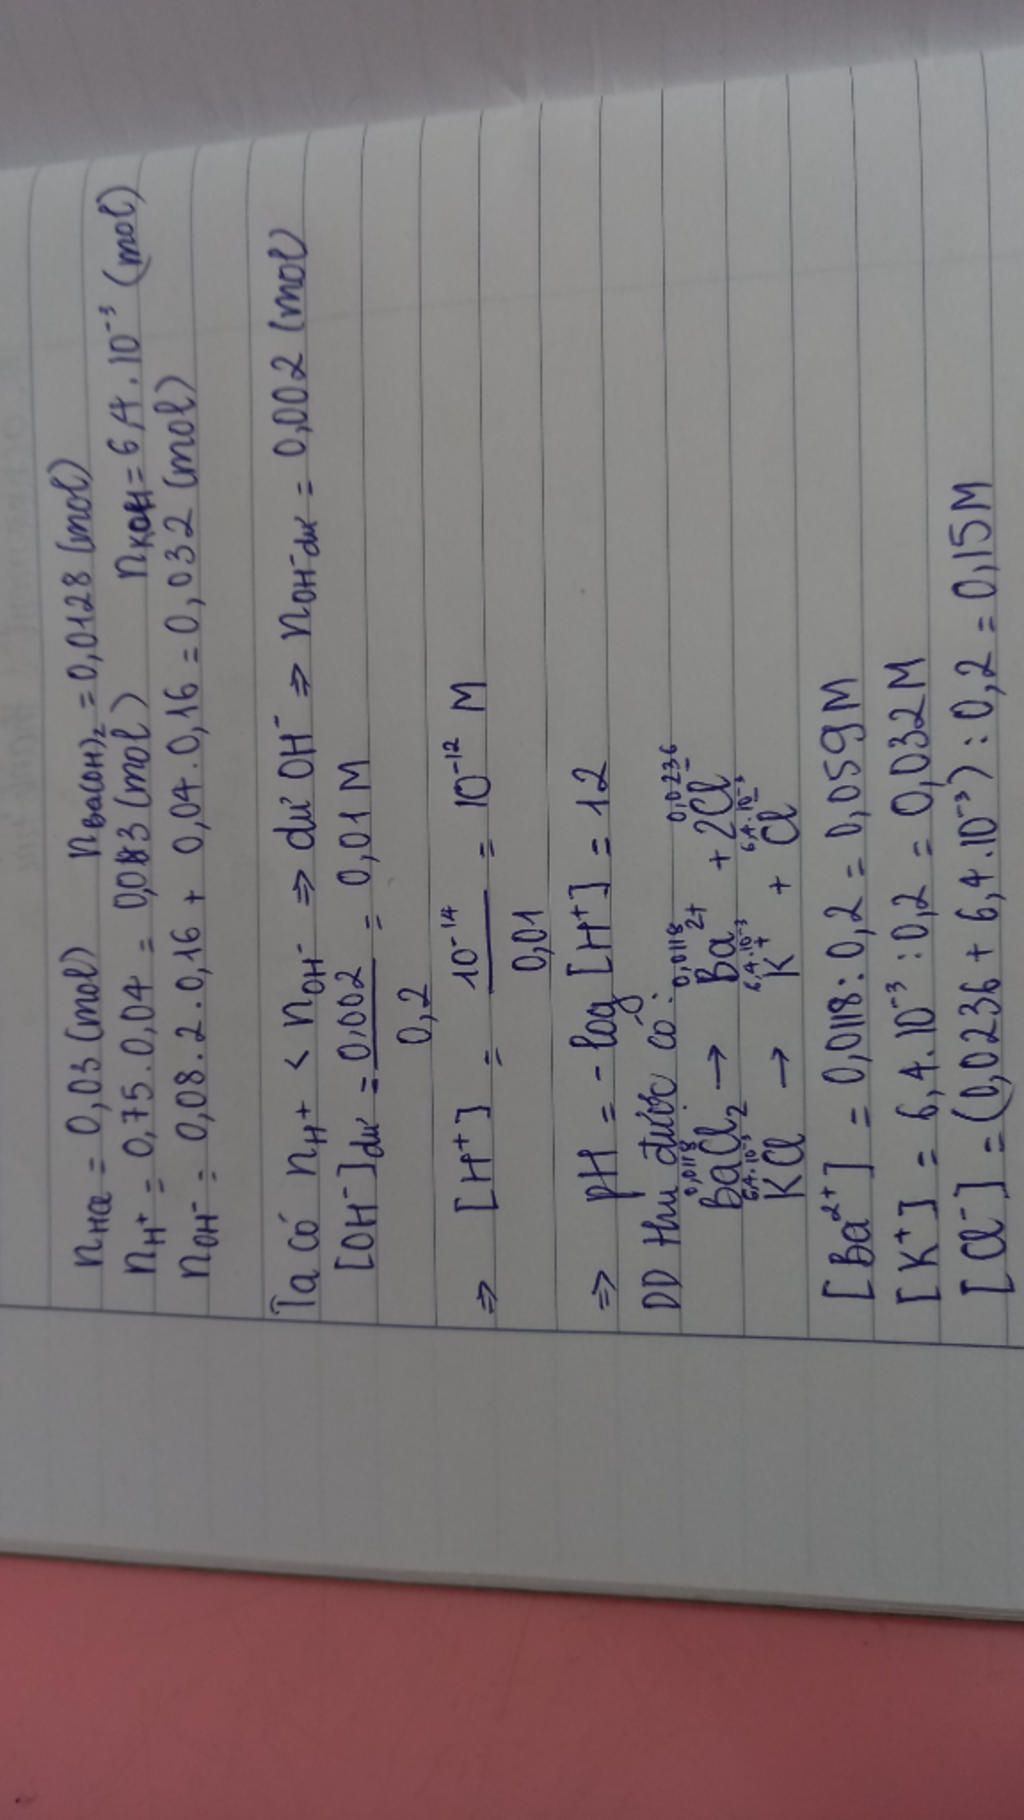 nHCl = 0,03 (mol) nBa(OH)₂ = 0,0128 (mol)
nH⁺ = 0,75 . 0,04 = 0,03 (mol) nKOH = 6,4 . 10⁻³ (mol)
nOH⁻ = 0,08 . 2 . 0,16 + 0,04 . 0,16 = 0,032 (mol)
Ta có nH⁺ < nOH⁻ ⇒ dư OH⁻ ⇒ nOH⁻dư = 0,002 (mol)
[OH⁻]dư = 0,002 = 0,01 M
0,2
⇒ [H⁺] = 10⁻¹⁴ = 10⁻¹² M
0,01
⇒ pH = -log [H⁺] = 12
DD thu được có:
0,0118 0,0118 0,0236
BaCl₂ → Ba²⁺ + 2Cl⁻
6,4.10⁻³ 6,4.10⁻³ 6,4.10⁻³
KCl → K⁺ + Cl⁻
[Ba²⁺] = 0,0118 : 0,2 = 0,059 M
[K⁺] = 6,4 . 10⁻³ : 0,2 = 0,032 M
[Cl⁻] = (0,0236 + 6,4 . 10⁻³) : 0,2 = 0,15 M